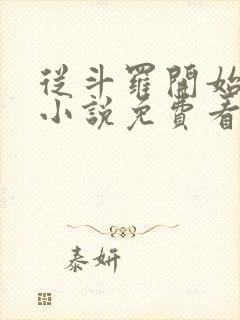 從斗羅開始
小說免費看
泰妍